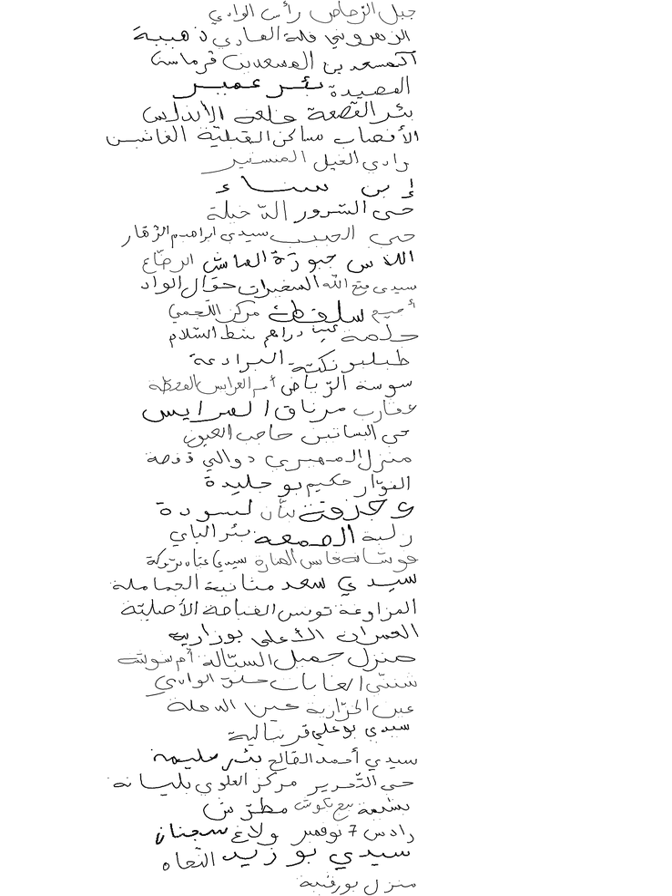 جبل الرصاص رأس الوادي
الزهروني فلة الهادي ذهيبة
اكنسعد بن المسعدين قرماسن
المصيدة بئر عمير
بئر القصعة خلعي الأندلس
الأنصاب مساكن القبلية الغانمين
وادي الغيل المنستير
إبن سناء
حي السرور الدخيلة
حي الحبيب سيدي ابراهيم الزهار
جبوزة العاش الرضاع
سيدي فتح الله الصخيرات حوال الواد
سلقطة مركز اللجمي
حلمة دراهم شط السلام
طبلبو نكتة البرادعة
سوسة الرياض أم العرايس
عقارب مرناق العرايس
حي البساتين حاجب العيون
منزل المهيري دوالي قفصة
الفوار حكيم بو جليدة
وجزفة لسودة
رلبة الجمعة بئر الباي
غوشانة
سيدي سعد منانية الحماملة
المزاوغة تونس الغناجة الأصلية
العمران الأعلى بوزارية
منزل جميل السبالة أم شوشة
شنني الغابات حلق الوادي
عين الحزارية عين الدحلة
سيدي بوعلي قربالية
سيدي أحمد الفالح بئر سليمة
حي التحرير مركز العلوي بليانة
بشيمة مطرش
رادس 7 نوفمبر ولاغ سجنان
سيدي بوزيد النعاه
منزل بورقيبة